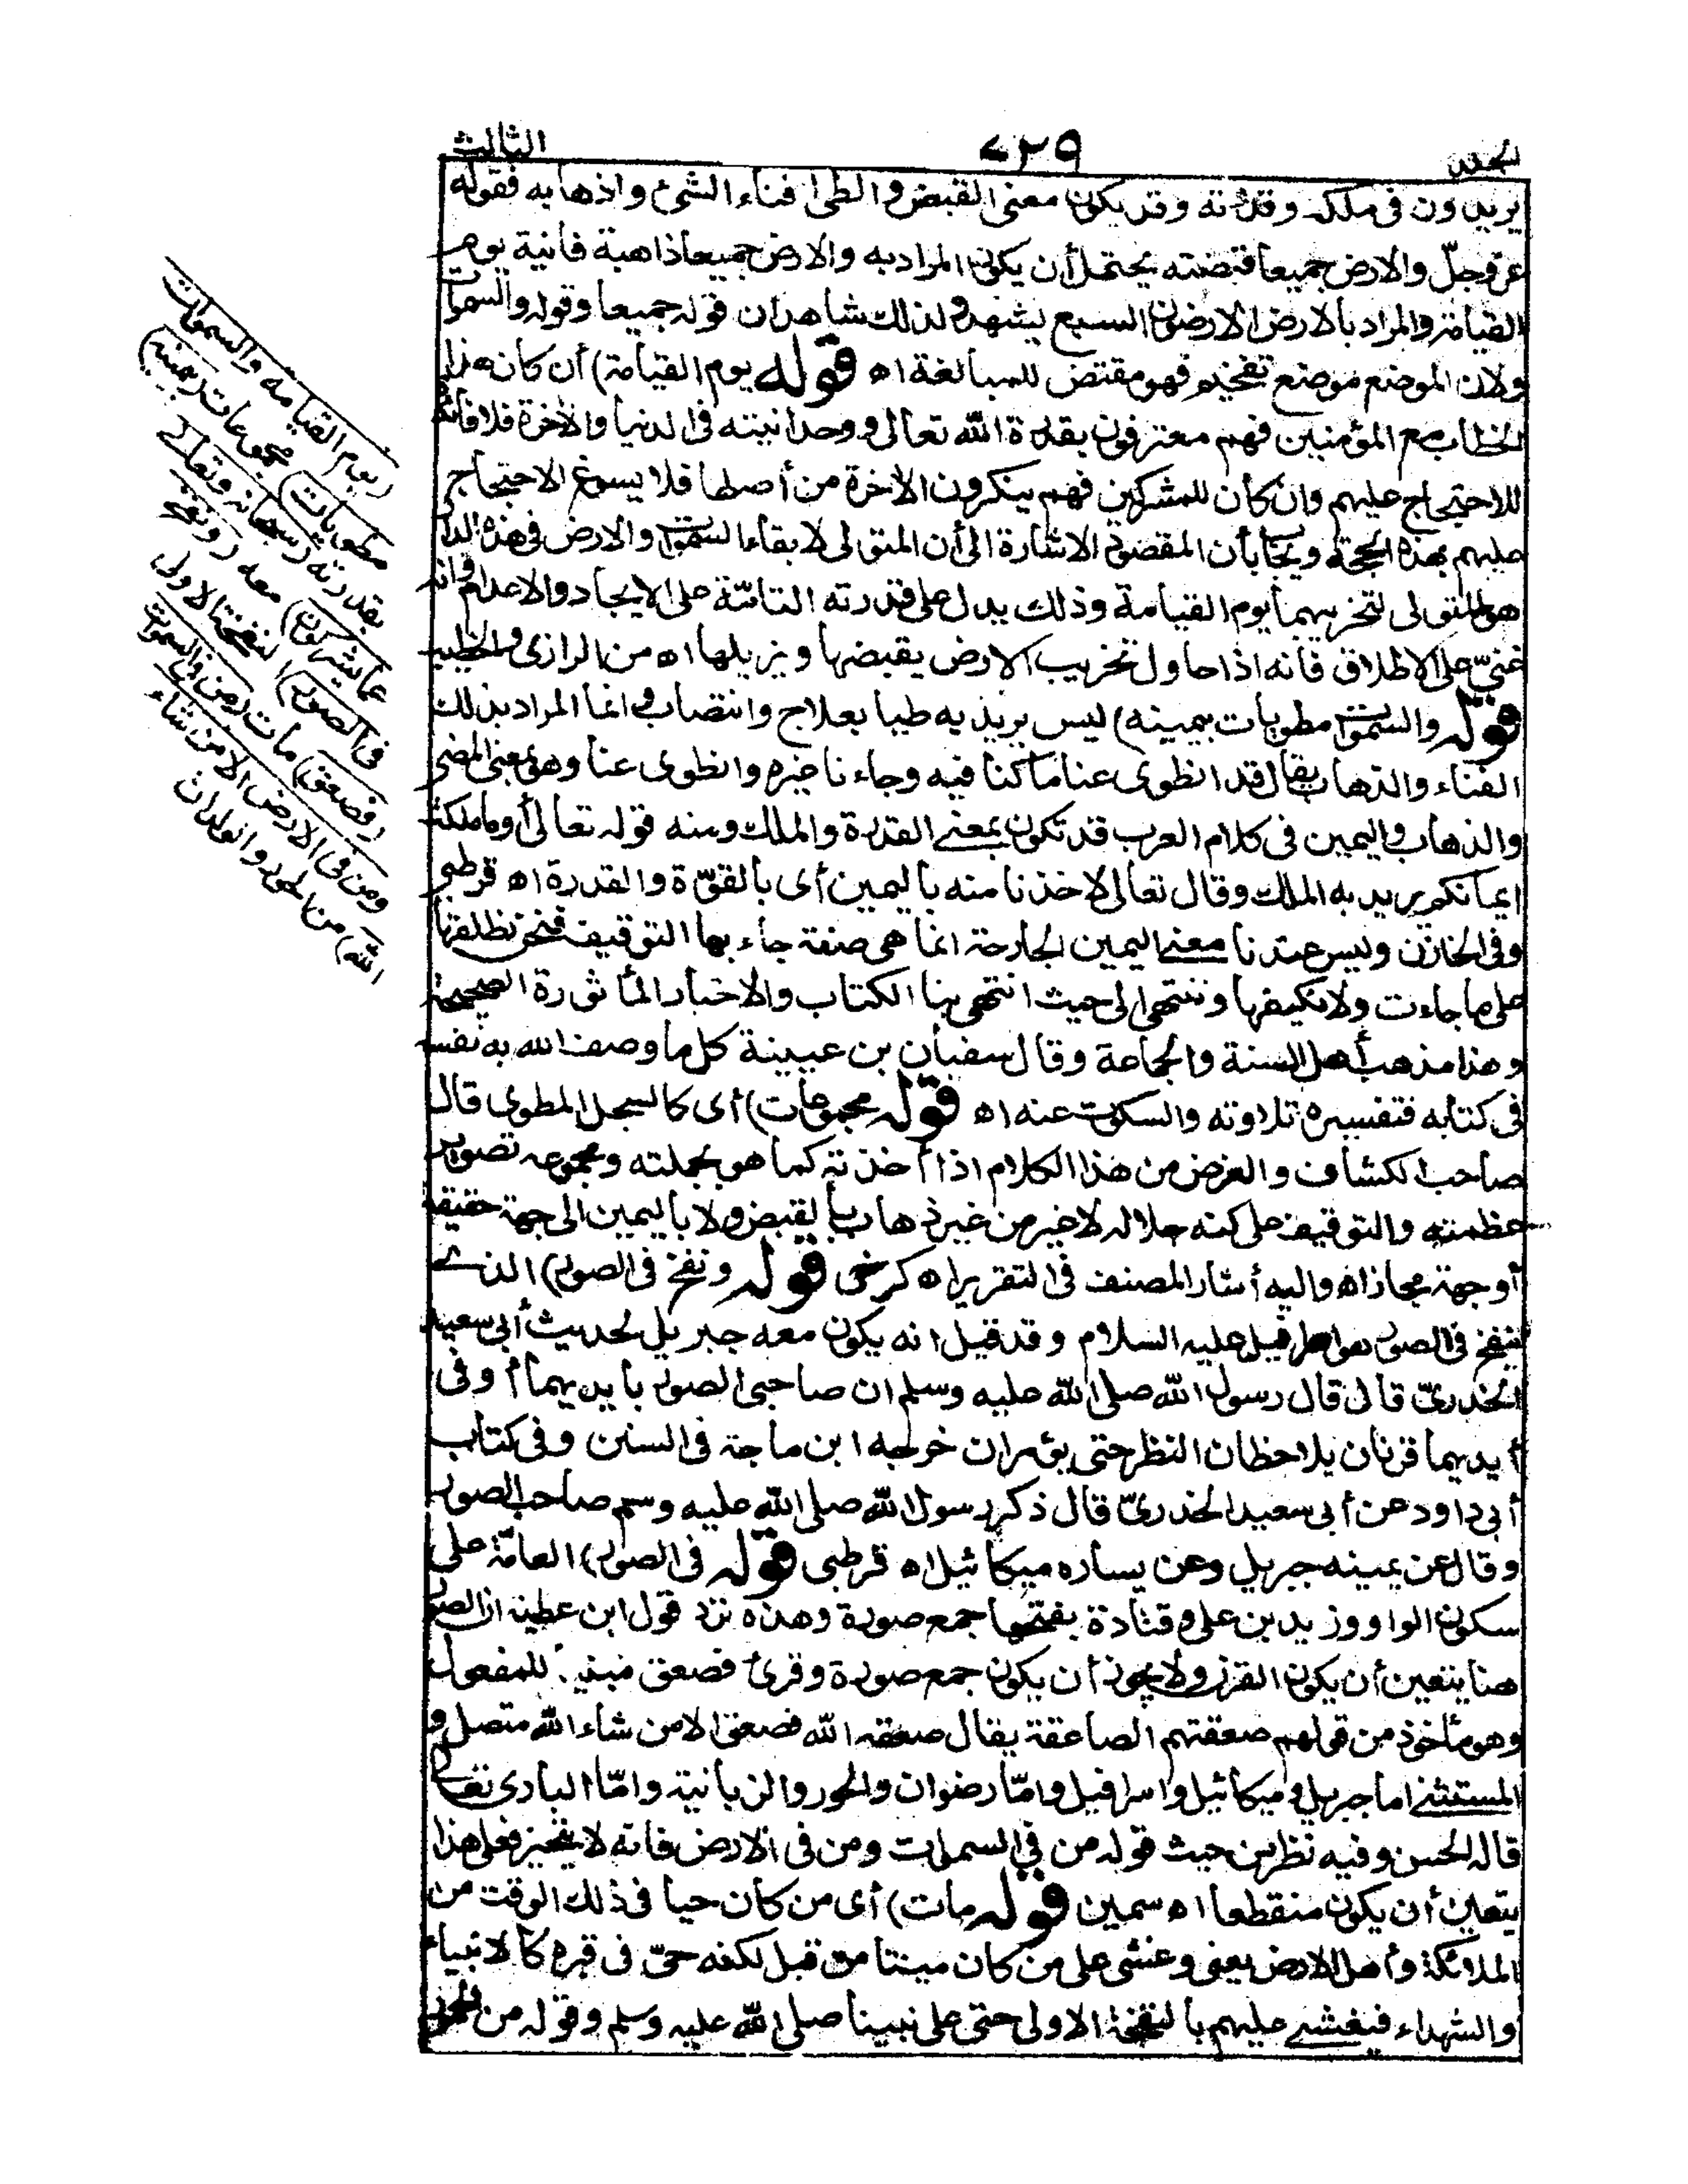 الجزء
٧٢٩
الثالث
يريدون فى ملكه وقدرته وقد يكون معنى القبض والطى افناء الشئ واذهابه فقوله
عز وجلّ والارض جميعا قبضته يحتمل أن يكون المراد به والارض جميعا ذاهبة فانية يوم
القيامة والمراد بالارض الارضون السبع يشهد لذلك شاهدان قوله جميعا وقوله والسموات
ولان الموضع موضع تفخيم فهو مقتض للمبالغة اه قوله يوم القيامة) أن كان هذا
الخطاب مع المؤمنين فهم معترفون بقدرة الله تعالى ووحدانيته فى الدنيا والآخرة فلا فائدة
للاحتجاج عليهم وان كان للمشركين فهم ينكرون الآخرة من أصلها فلا يسوغ الاحتجاج
عليهم بهذه الحجة ويجاب بأن المقصود الاشارة الى أن المتولى لابقاء السموات والارض فى هذه الدار
هو المتولى لتخريبهما يوم القيامة وذلك يدل على قدرته التامّة على الايجاد والاعدام وانه
غنىّ على الاطلاق فانه اذا حاول تخريب الارض يقبضها ويزيلها اه من الرازى والخطيب
قوله والسموات مطويات بيمينه) ليس يريد به طيا بعلاج وانتصاب وانما المراد بذلك
الفناء والذهاب يقال قد انطوى عنا ما كنا فيه وجاءنا غيره وانطوى عنا وهو بمعنى المضى
والذهاب واليمين فى كلام العرب قد تكون بمعنى القدرة والملك ومنه قوله تعالى أو ما ملكت
ايمانكم يريد به الملك وقال تعالى لاخذنا منه باليمين أى بالقوّة والقدرة اه قرطبى
وفى الخازن وليس عندنا معنى اليمين الجارحة انما هى صفة جاء بها التوقيف فنحن نطلقها
على ما جاءت ولا نكيفها وننتهى الى حيث انتهى بنا الكتاب والاخبار المأثورة الصحيحة
وهذا مذهب أهل السنة والجماعة وقال سفيان بن عيينة كل ما وصف الله به نفسه
فى كتابه فتفسيره تلاوته والسكوت عنه اه قوله مجموعات) أى كالسجل المطوى قال
صاحب الكشاف والغرض من هذا الكلام اذا أخذته كما هو بجملته ومجموعه تصوير
عظمته والتوقيف على كنه جلاله لا غير من غير ذهاب بالقبض ولا باليمين الى جهة حقيقة
أو جهة مجاز اه واليه أشار المصنف فى التقرير اه كرخى قوله ونفخ فى الصور) الذى
ينفخ فى الصور هو اسرافيل عليه السلام وقد قيل انه يكون معه جبريل لحديث أبى سعيد
الخدرىّ قال قال رسول الله صلى الله عليه وسلم ان صاحبى الصور بايديهما أو فى
أيديهما قرنان يلاحظان النظر حتى يؤمران خرجه ابن ماجة فى السنن وفى كتاب
أبى داود عن أبى سعيد الخدرىّ قال ذكر رسول الله صلى الله عليه وسم صاحب الصور
وقال عن يمينه جبريل وعن يساره ميكائيل اه قرطبى قوله فى الصور) العامّة على
سكون الواو وزيد بن على وقتادة بفتحها جمع صورة وهذه ترد قول ابن عطية ان الصور
هنا يتعين أن يكون القرن ولا يجوز أن يكون جمع صورة وقرئ فصعق مبنيا للمفعول
وهو مأخوذ من قولهم صعقتهم الصاعقة يقال صعقه الله فصعق الا من شاء الله متصل و
المستثنى اما جبريل وميكائيل واسرافيل وامّا رضوان والحور والزبانية وامّا البارى تعالى
قاله الحسن وفيه نظر من حيث قوله من فى السموات ومن فى الارض فانه لا يتحيز فعلى هذا
يتعين أن يكون منقطعا اه سمين قوله مات) أى من كان حيا فى ذلك الوقت من
الملائكة وأهل الارض يعنى وغشى على من كان ميتا من قبل لكنه حىّ فى قبره كالانبياء
والشهداء فيغشى عليهم بالنفخة الاولى حتى على نبينا صلى الله عليه وسلم وقوله من الحور
(يوم القيامة والسموات
مطويات) مجموعات (بيمينه)
بقدرته (سبحانه وتعالى
عما يشركون) معه (ونفخ
فى الصور) النفخة الاولى
(فصعق) مات (من فى السموات
ومن فى الارض الا من شاء
الله) من الحور والولدان